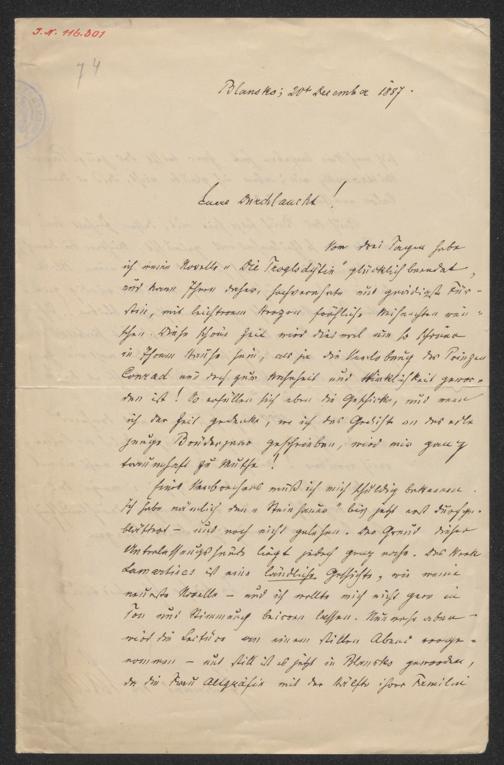 I.N. 116.801
74
Blansko, 20t December 1887.
Euere Durchlaucht!
Vor drei Tagen habe
ich meine Novelle „Die Troglodytin“ glücklich beendet,
und kann Ihnen daher, hochverehrte und gnädigste Für-
stin, mit leichterem Herzen fröhliche Weihnachten wün-
schen. Diese schöne Zeit wird dies mal um so schöner
in Ihrem Hause sein, als ja die Verlobung des Prinzen
Conrad nun doch zur Wahrheit und Wirklichkeit gewor-
den ist! So erfüllen sich eben die Geschicke, und wenn
ich der Zeit gedenke, wo ich das Gedicht an das edle
junge Bruderpaar geschrieben, wird mir ganz
traumhaft zu Muthe!
Eines Verbrechens muß ich mich schuldig bekennen.
Ich habe nämlich den „Steinhauer“ bis jetzt erst durchge-
blättert – und noch nicht gelesen. Der Grund dieser
Unterlassungssünde liegt jedoch ganz nahe. Das Werk
Lamartines ist eine ländliche Geschichte, wie meine
neueste Novelle – und ich wollte mich nicht gern in
Ton und Stimmung beirren lassen. Nunmehr aber
wird die Lectüre an einem stillen Abend vorge-
nommen – und still ist es jetzt in Blansko geworden,
da die Frau Altgräfin mit der Hälfte ihrer Familie